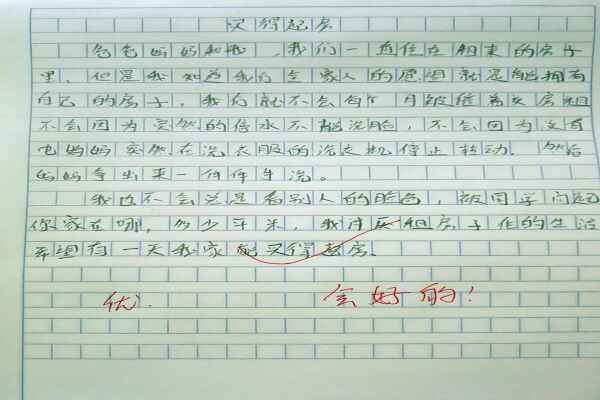 买得起房
爸爸妈妈和我,我们一直住在租来的房子
里,但是我知道我们全家人的愿望就是能拥有
自己的房子,我们就不会每个月被催着交房租
不会因为突然的停水不能洗脸,不会因为没有
电妈妈突然在洗衣服的洗衣机停止转动。然后
妈妈拿出来一件件手洗。
我也不会总是看别人的脸色,被同学问起
你家在哪,多少平米,我讨厌租房子住的生活
希望有一天我家能买得起房。
优. 会好的!